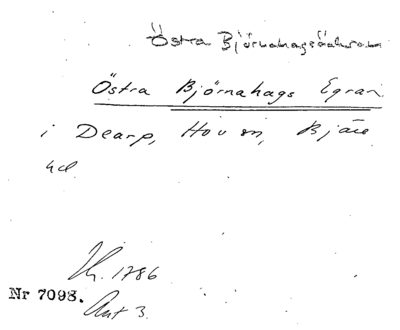 Östra Björnahagsåakrarna
Östra Björnahags Egran
i Dearp, Hov sn, Bjäre
hd
Ak. 1786
Nr 7098.
Akt 3.